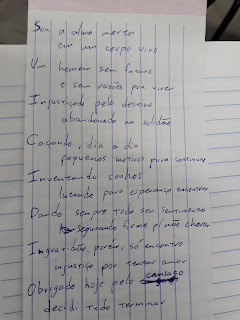 Sou a alma morta
em um corpo vivo
Um homem sem futuro
e sem razões pra viver
Injustiçado pelo destino
abandonado na solidão
Caçando, dia a dia
pequenos motivos para continuar
Inventando sonhos
lutando para esperança encontrar
Dando sempre todo seu sentimento
segurando firme p/ não chorar
Ingratidão, porém, só encontro
injustiça por tentar amar
Obrigado hoje pelo cansaço
decidi tudo terminar